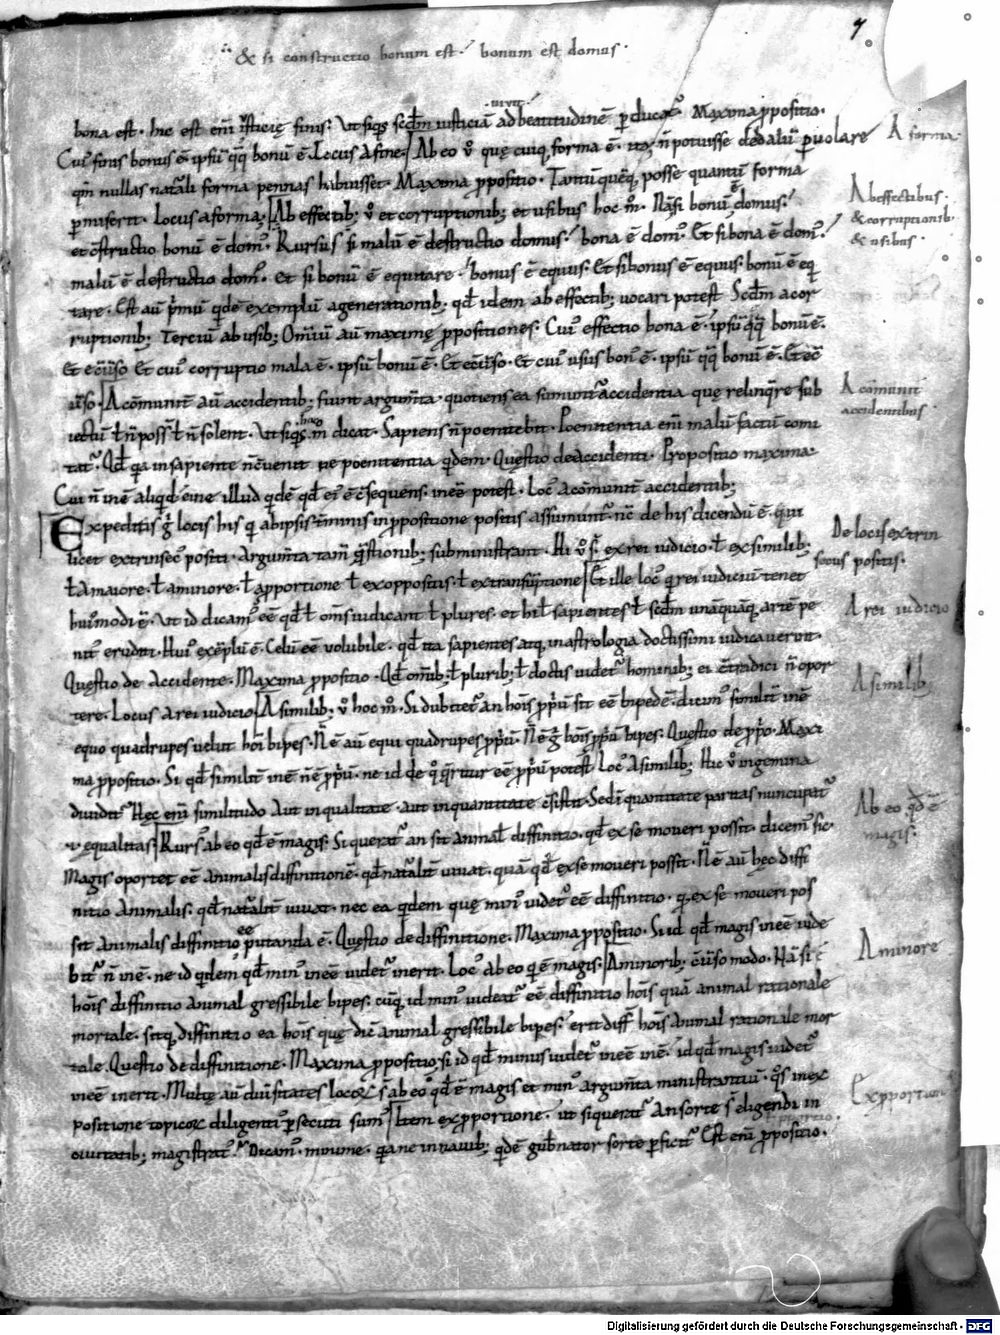 7
& si constructio bonum est. bonum est domus.
uiuit
bona est. hic est eni iusticię finis. Ut siqs scdm iusticiā ad beatitudinē pducat. Maxima ppositio.
Cui finis bonus ē ipsū qq bonū ē. Locus a fine. Ab eo u que cuiq forma ē. ita n potuisse dedalū puolare
A forma.
qm nullas natali forma pennas habuisset. Maxima ppositio. Tantū quēq posse quantū forma
pmiserit. Locus a forma. Ab effectib; u et corruptionib; et usibus hoc m. Nāsi bonū ē domus.
Ab effectibus.
& corruptionib.
& usibus.
et cstructio bonū ē dom. Rursus si malū ē destructio domus. bona ē dom. Et si bona ē dom.
malū ē destructio dom. Et si bonū ē equitare. bonus ē equus. Et si bonus ē equus. bonū ē eq
tare. Est aū pmū qde exemplū a generationib; qd idem ab effectib; uocari potest Scdm a cor
ruptionib; Terciū ab usib; Omiū aū maximę ppositiones. Cui effectio bona ē. ipsū qq bonū ē.
Et ecuso Et cui corruptio mala ē. ipsū bonū ē. Et ecuso. Et cui usus bon ē. ipsū qq bonū ē. Et ec
uso. A cōmunit aū accidentib; fiunt argumta. quotiens ea sumunt accidentia que relinqre sub
A cōmunit
accidentibus
iectū t n poss t n solent. Ut siqs m dicat. Sapiens n poenitebit. Poenitentia eni malū factū comi
tat. Qd qa in sapiente n cuenit ne poenitentia qdem. Questio de accidenti. Propositio maxima.
Cui n inē aliqd eine illud qde qd ei ē csequens. inee potest. Loc a cōmunit accidentib;
Expeditis g locis his q ab ipsis tminis in ppositione positis assumunt. nc de his dicendū ē. qui
De locis extrin
secus positis.
licet extrinsec positi. Argumta tam qstionib; subministrant. Hi u s ex rei iudicio. t ex similib;
t a maiore. t a minore. t a pportione t ex oppositis. t ex transūptione Et ille loc q rei iudiciū tenet
hui modi ē. Ut id dicam ee qd t oms iudicant t plures. et hi t sapientes t scdm unāquāq artē pe
A rei iudicio
nit eruditi. Hui exeplū ē. Celū ee uolubile. qd ita sapientes atq in astrologia doctissimi iudicauerunt.
Questio de Accidente. Maxima ppositio. Qd omib; t plurib; t doctis uidet hominib; ei ctradici n opor
tere. Locus a rei iudicio A similib; u hoc m. Si dubitet an hois ppu sit ee bipedē. dicim similit inē
A similib;
equo quadrupes uelut hoi bipes. N ē aū equi quadrupes ppu. N ē g hois ppu bipes. Questio de ppo. Maxi
ma ppositio. Si qd similit inē n ē ppu. ne id de q qritur ee ppu potest Loc A similib; Hic u in gemina
diuidit Hec eni similitudo Aut in qualitate. aut in quantitate csistit. Sed i quantitate paritas nuncupat
r equalitas Rurs ab eo qd ē magis. Si querat an sit animal diffinitio. qd ex se moueri possit. dicem sic
Ab eo qd ē
magis.
Magis oportet ee animalis diffinitionē. qd natalit uiuat. quā qd ex se moueri possit. N ē aū hec diffi
nitio animalis. qd natalit uiuat. nec ea qdem que min uidet ee diffinitio. q ex se moueri pos
ee
sit animalis diffinitio putanda ē. Questio de diffinitione. Maxima ppositio. Si id qd magis inee uide
bit n inē. ne id qdem qd min inee uidet inerit. Loc ab eo q ē magis. A minorib; cuso modo. Na si
A minore
hois diffinitio animal gressibile bipes. cuq id min uideat ee diffinitio hois quā animal rationale
mortale. sitq diffinitio ea hois que dic animal gressibile bipes. erit diff hois animal rationale mor
tale. Questio de diffinitione. Maxima ppositio. si id qd minus uidet inee inē. id qd magis uidet
inee inerit. Multe aū diuisitates loco s ab eo qd ē magis et min argumta ministrantiū. qs in ex
positione topico diligenti psecuti sum Item ex pportione. ut si querat An sorte s eligendi in
Ex pportion
ciuitatib; magistrat. Dicam. minime. qa ne in nauib; qde gubnator sorte pficit Est eni pportio.
Digitalisierung gefördert durch die Deutsche Forschungsgemeinschaft - DFG